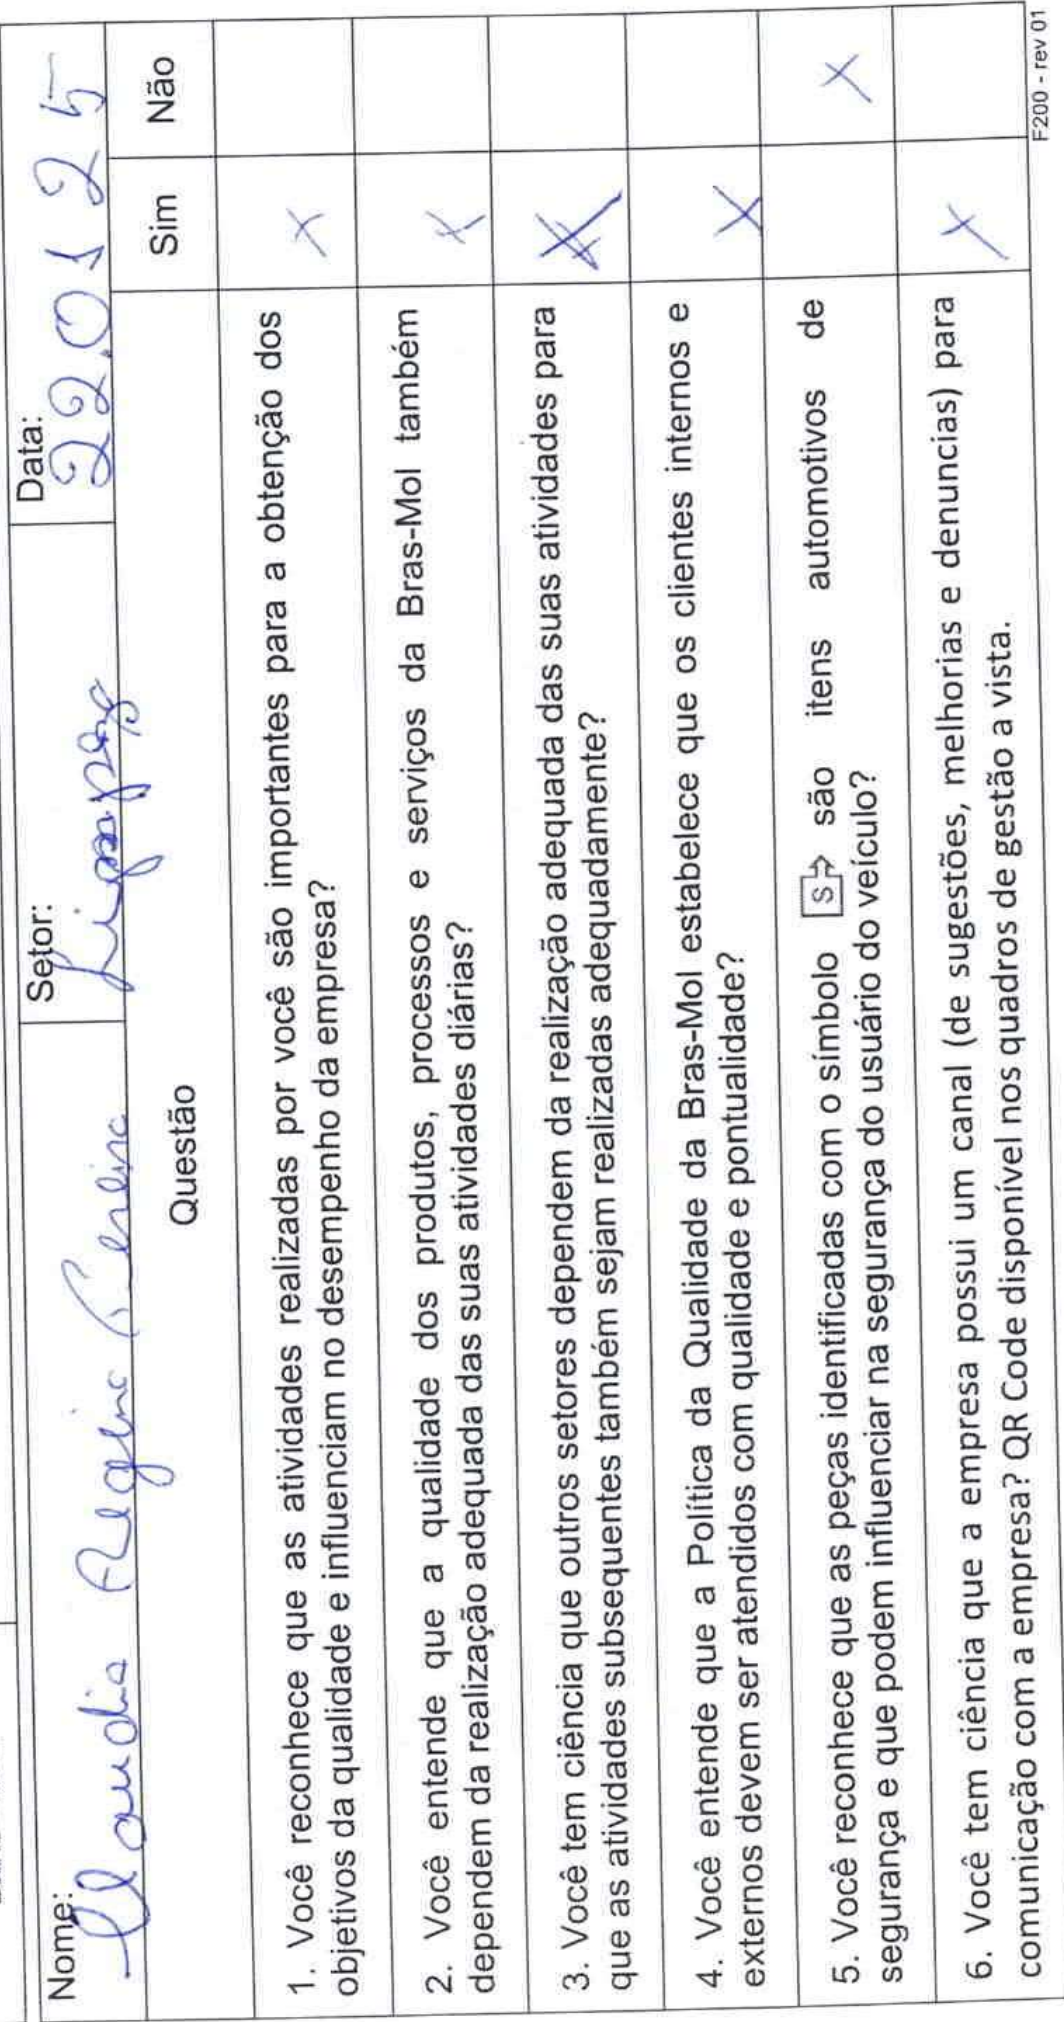 Nome: Claudia Regina Pereira
Setor: Limpeza
Data: 22.01 25
Questão
Sim
Não
1. Você reconhece que as atividades realizadas por você são importantes para a obtenção dos
objetivos da qualidade e influenciam no desempenho da empresa?
X
2. Você entende que a qualidade dos produtos, processos e serviços da Bras-Mol também
dependem da realização adequada das suas atividades diárias?
X
3. Você tem ciência que outros setores dependem da realização adequada das suas atividades para
que as atividades subsequentes também sejam realizadas adequadamente?
X
4. Você entende que a Política da Qualidade da Bras-Mol estabelece que os clientes internos e
externos devem ser atendidos com qualidade e pontualidade?
X
5. Você reconhece que as peças identificadas com o símbolo S são itens automotivos de
segurança e que podem influenciar na segurança do usuário do veículo?
X
6. Você tem ciência que a empresa possui um canal (de sugestões, melhorias e denuncias) para
comunicação com a empresa? QR Code disponível nos quadros de gestão a vista.
X
F200 - rev 01